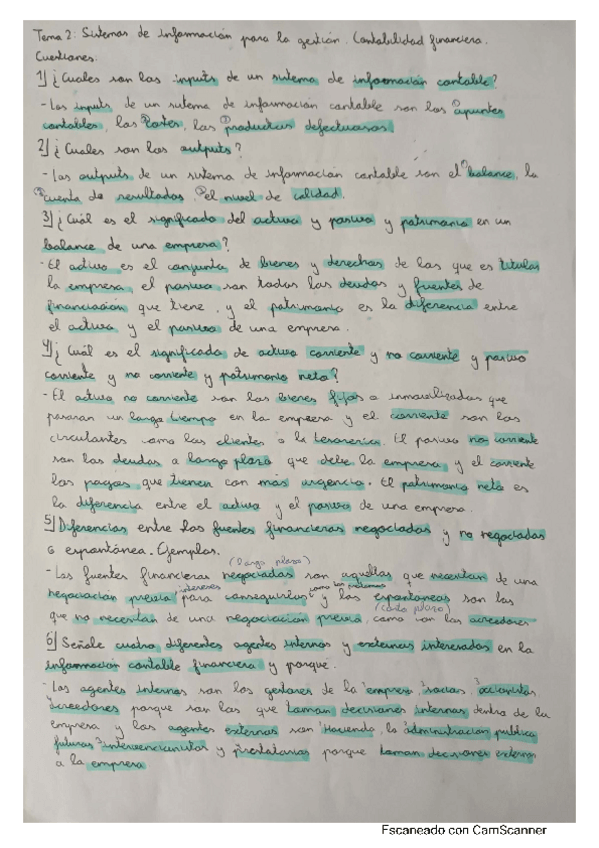 Tema 2: Sistemas de información para la gestión. Contabilidad financiera.
Cuestiones.
1] ¿Cuales son los inputs de un sistema de información contable?
- Los inputs de un sistema de información contable son los ①apuntes
contables, los ②costes, los ③productos defectuosos.
2] ¿Cuales son los outputs?
- Los outputs de un sistema de información contable son el ①balance, la
②cuenta de resultados, ③el nivel de calidad.
3] ¿Cuál es el significado del activo y pasivo y patrimonio en un
balance de una empresa?
- El activo es el conjunto de bienes y derechos de los que es titular
la empresa, el pasivo son todas las deudas y fuentes de
financiación que tiene, y el patrimonio es la diferencia entre
el activo y el pasivo de una empresa.
4] ¿Cuál es el significado de activo corriente y no corriente y pasivo
corriente y no corriente y patrimonio neto?
- El activo no corriente son los bienes fijos o inmovilizados que
pasaran un largo tiempo en la empresa y el corriente son los
circulantes como los clientes o la tesorería. El pasivo no corriente
son las deudas a largo plazo que debe la empresa y el corriente
los pagos que tienen con más urgencia. El patrimonio neto es
la diferencia entre el activo y el pasivo de una empresa.
5] Diferencias entre las fuentes financieras negociadas y no negociadas
o espontánea. Ejemplos.
(Largo plazo)
- Las fuentes financieras negociadas son aquellas que necesitan de una
intereses como los préstamos
negociación previa para conseguirlos y las espontáneas son las
(corto plazo)
que no necesitan de una negociación previa, como son los acreedores
6] Señale cuatro diferentes agentes internos y externos interesados en la
información contable financiera y porqué.
- Los agentes internos son los gestores de la empresa, socios, accionistas
acreedores porque son los que toman decisiones internas dentro de la
empresa y los agentes externos son Hacienda, la administración publica
futuros y prestatarios porque toman decisiones externas
a la empresa
Escaneado con CamScanner